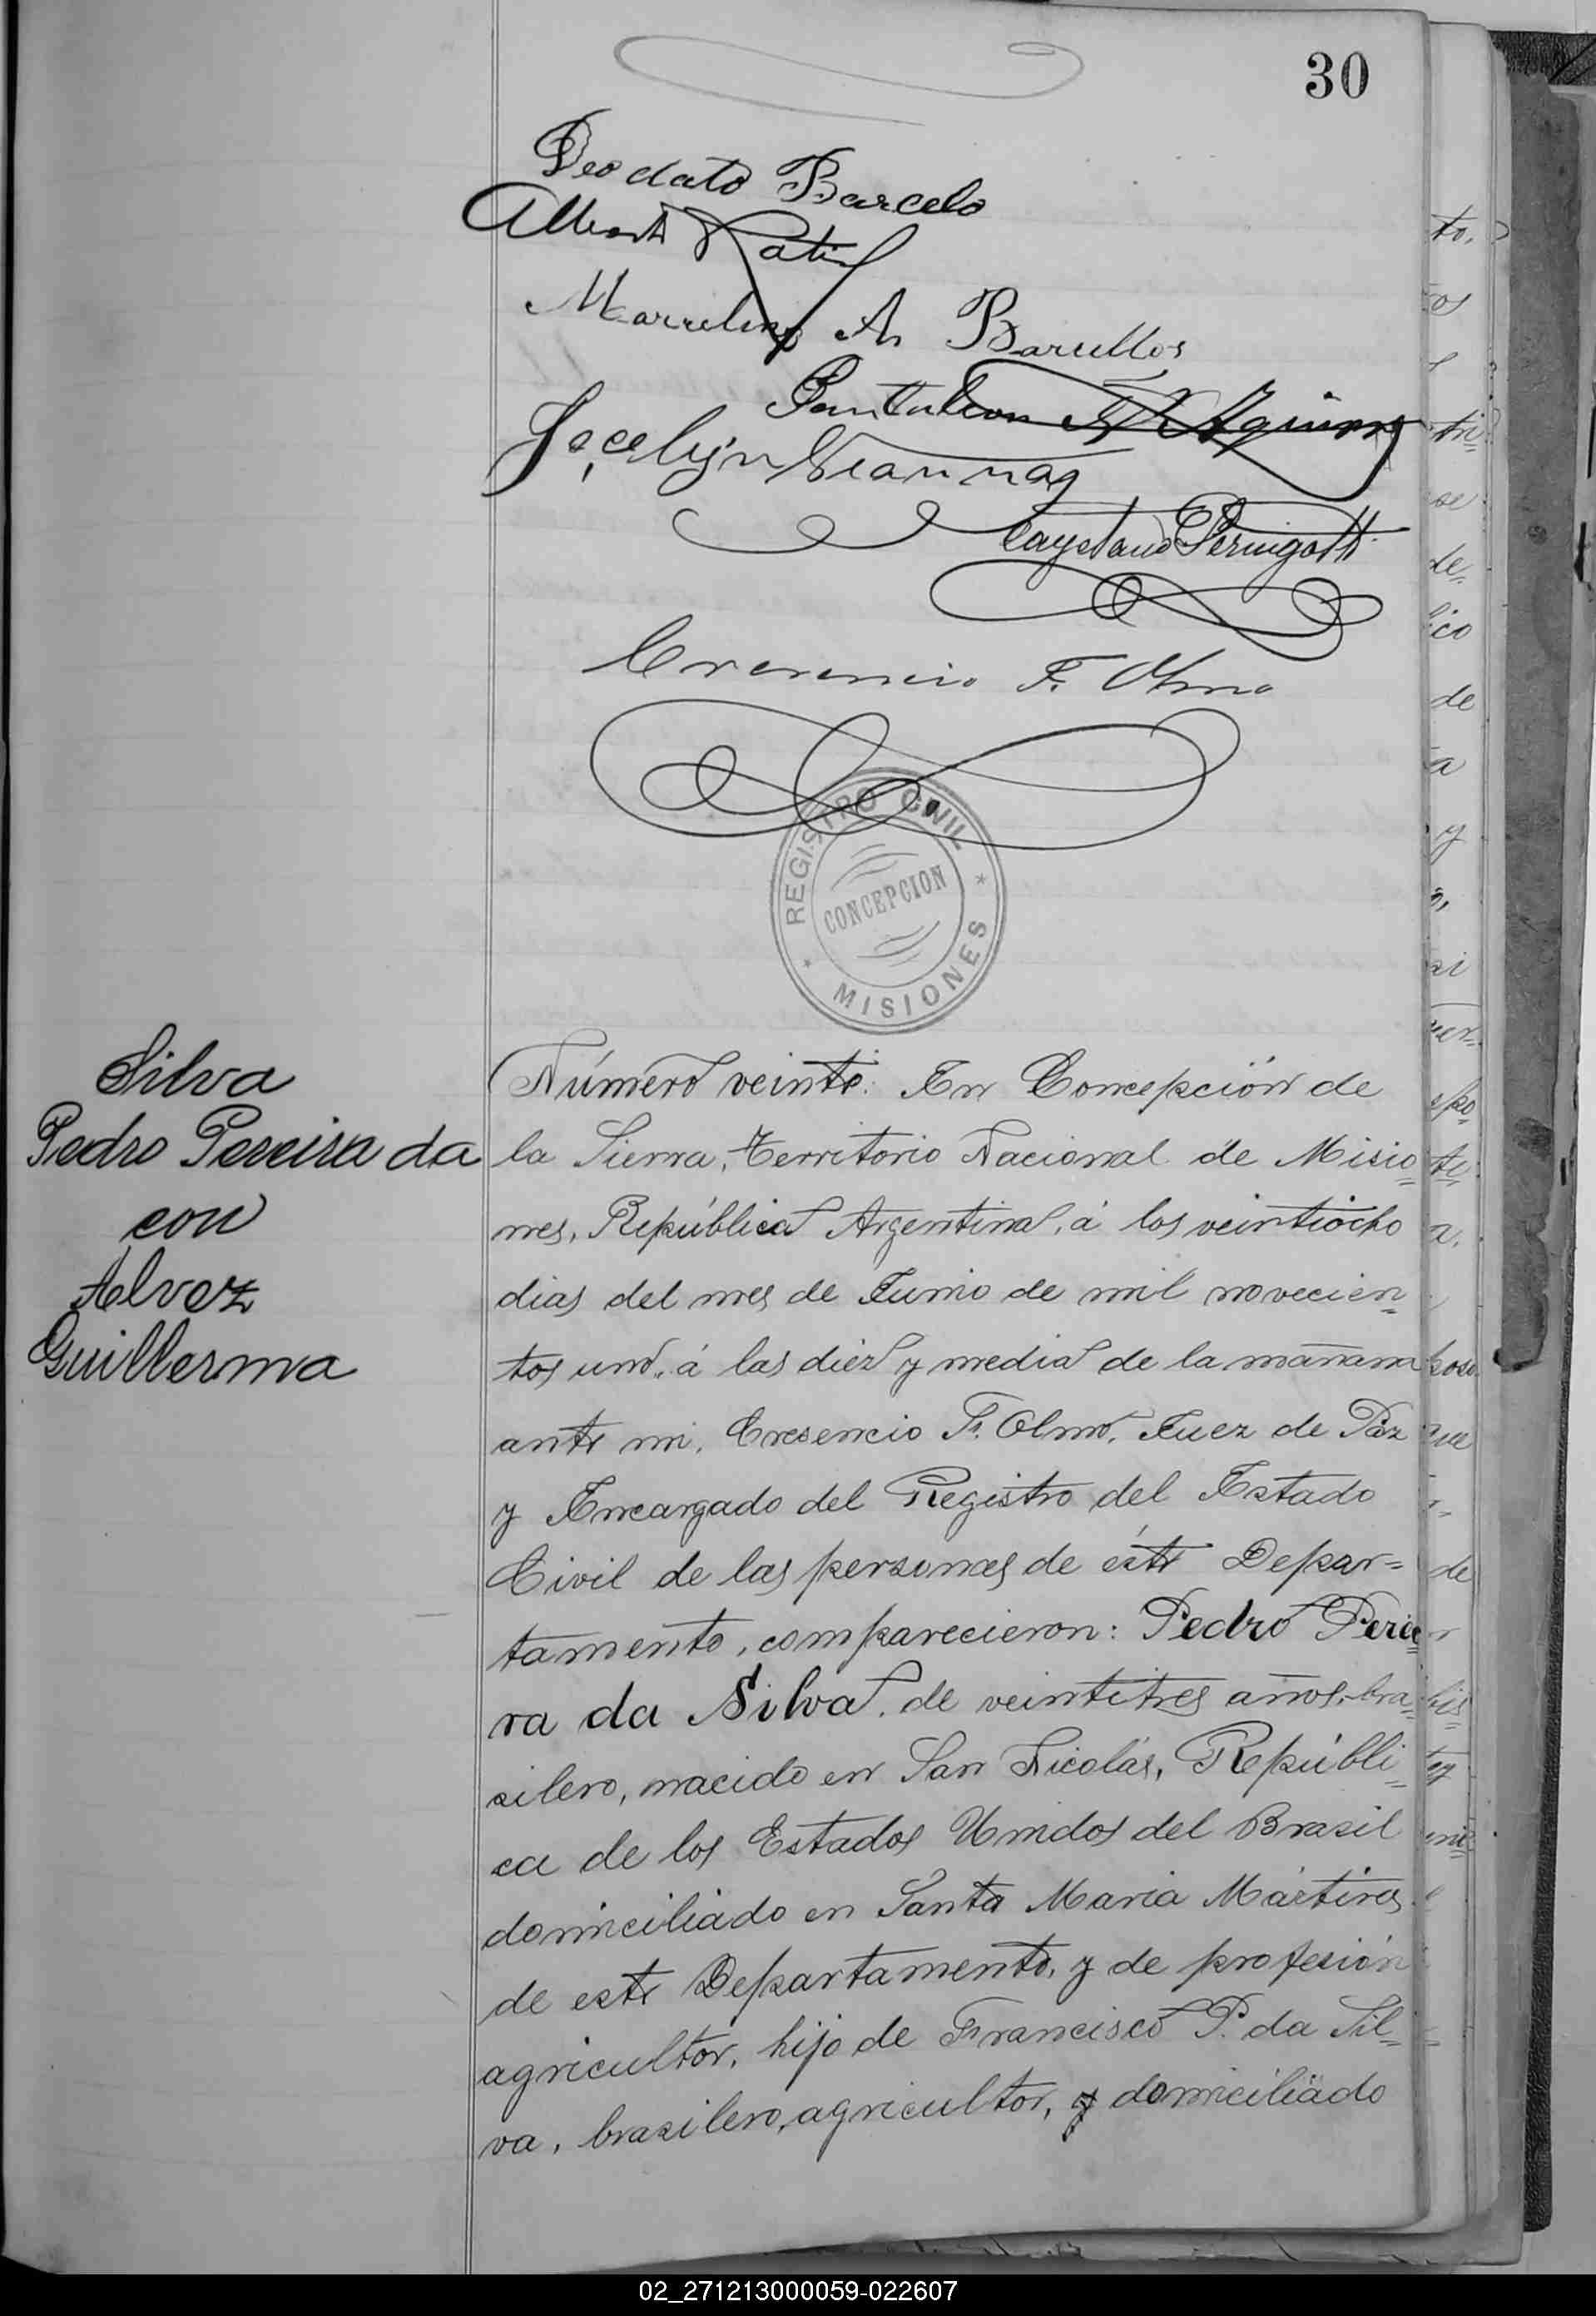 30
Deodato Barcelo
Marcelino A. Barcellos
Pantaleon Aguirre
Jocelyn
Cayetano Pernigotti
Cresencio F. Olmo
REGISTRO CIVIL
CONCEPCION
MISIONES
Silva
Pedro Pereira da
con
Alvez
Guillerma
Número veinte: En Concepción de
la Sierra, Territorio Nacional de Misio=
nes, República Argentina, á los veintiocho
dias del mes de Junio de mil novecien=
tos uno, á las diez y media de la mañana
ante mi, Cresencio F. Olmo, Juez de Paz
y Encargado del Registro del Estado
Civil de las personas de éste Depar=
tamento, comparecieron: Pedro Perei=
ra da Silva, de veintitres años, bra=
silero, nacido en San Nicolás, Repúbli=
ca de los Estados Unidos del Brasil
domiciliado en Santa Maria Mártires
de este Departamento, y de profesión
agricultor, hijo de Francisco P. da Sil=
va, brasilero, agricultor, y domiciliado
02_271213000059-022607